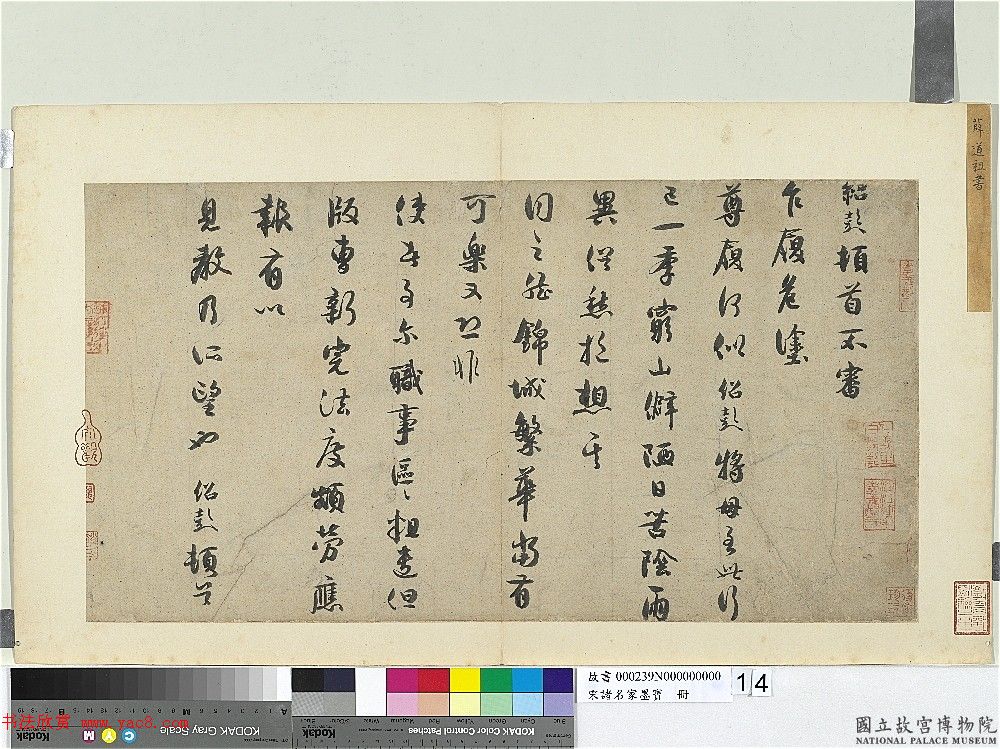 紹彭頓首不審
乍履危塗
尊履何似紹彭將母至此行
已一年窮山僻陋日苦陰雨
異 愁 想
同之然錦城繁華當有
可樂又恐非
使君事爾職事區區粗遣但
版曹新 法度頗勞應
報有以
見教乃所望也 紹彭頓首
薛道祖書
故書 000239N000000000
宋諸名家墨寶 冊
14
國立故宮博物院
NATIONAL PALACE MUSEUM
书法欣赏 www.yac8.com
KODAK Gray Scale
Kodak
C
Y
M
KODAK Color Control Patches
Kodak